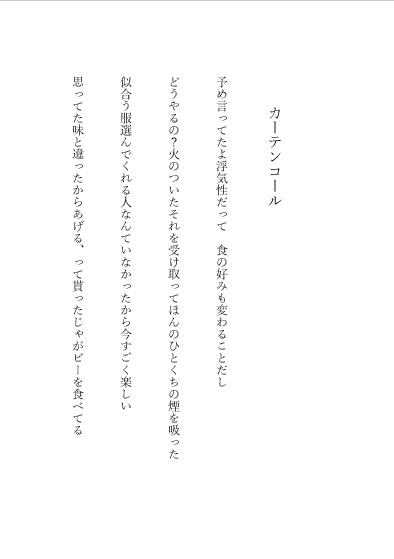 カーテンコール
予め言ってたよ浮気性だって　食の好みも変わることだし
どうやるの？火のついたそれを受け取ってほんのひとくちの煙を吸った
似合う服選んでくれる人なんていなかったから今すごく楽しい
思ってた味と違ったからあげる、って貰ったじゃがビーを食べてる